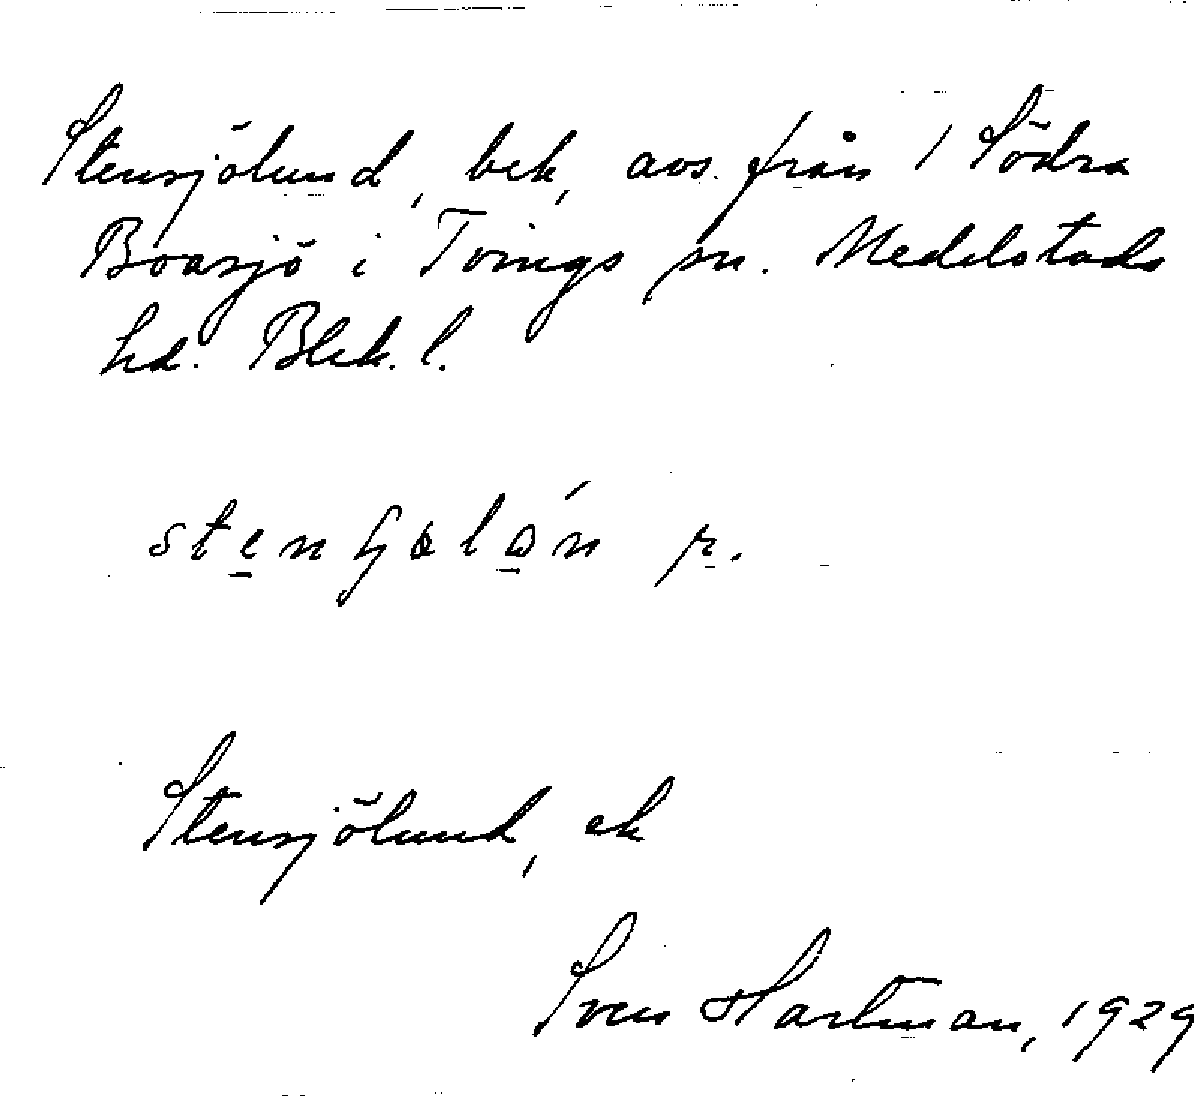 Stensjölund, bek, avs. från 1 Södra
Boasjö i Tvings sn. Medelstads
hd. Blek. l.
Stensjölund, ek
Sven Hartman, 1929